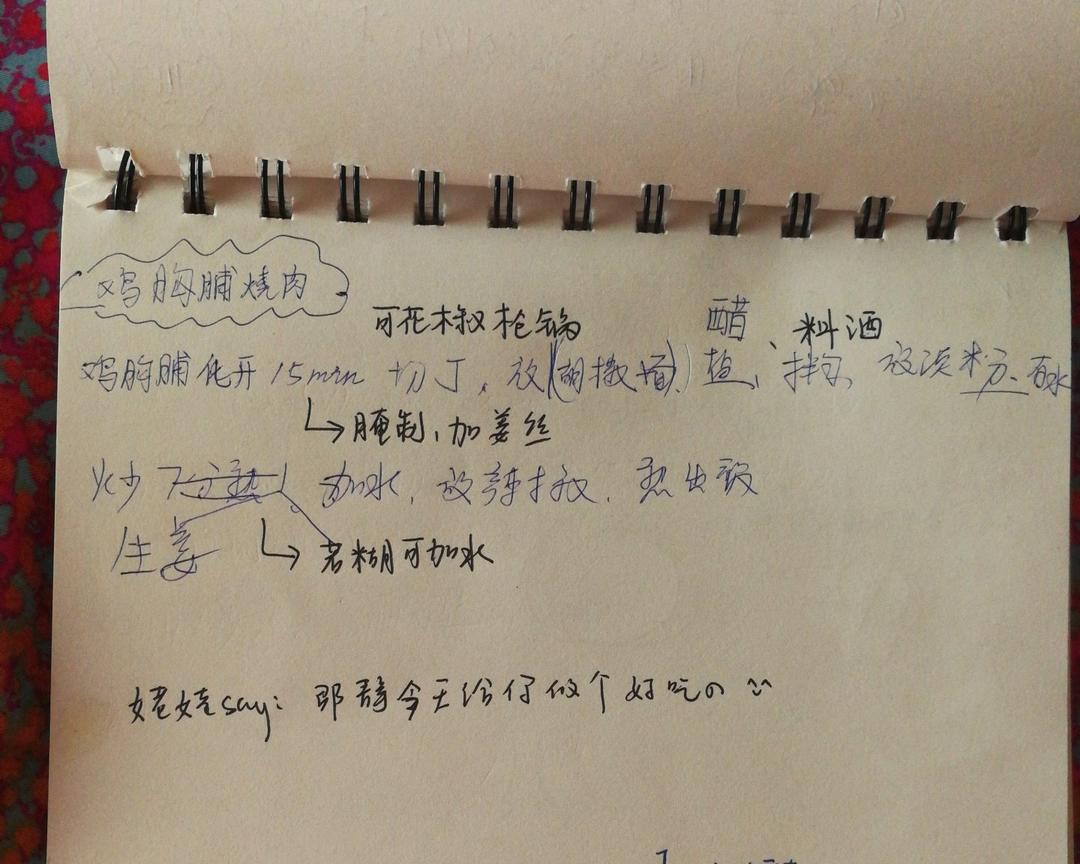 鸡胸脯烧肉
可花椒枪锅 醋、料酒
鸡胸脯化开 15min 切丁，放(胡椒面)盐、拌匀，放淀粉、有水
腌制，加姜丝
炒 7分熟 加水，放辣椒，
生姜 若糊可加水
say: 今天给你做个好吃の